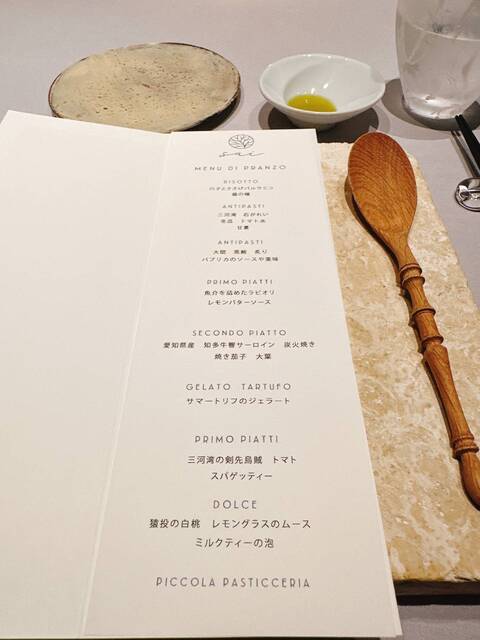 sai
MENU DI PRANZO
RISOTTO
ANTIPASTI
三河湾 石がれい
冬瓜 トマト水
ANTIPASTI
炙り
パプリカのソースや薬味
PRIMO PIATTI
魚介を詰めたラビオリ
レモンバターソース
SECONDO PIATTO
愛知県産 知多牛響サーロイン 炭火焼き
焼き茄子 大葉
GELATO TARTUFO
サマートリフのジェラート
PRIMO PIATTI
三河湾の剣先烏賊 トマト
スパゲッティー
DOLCE
猿投の白桃 レモングラスのムース
ミルクティーの泡
PICCOLA PASTICCERIA